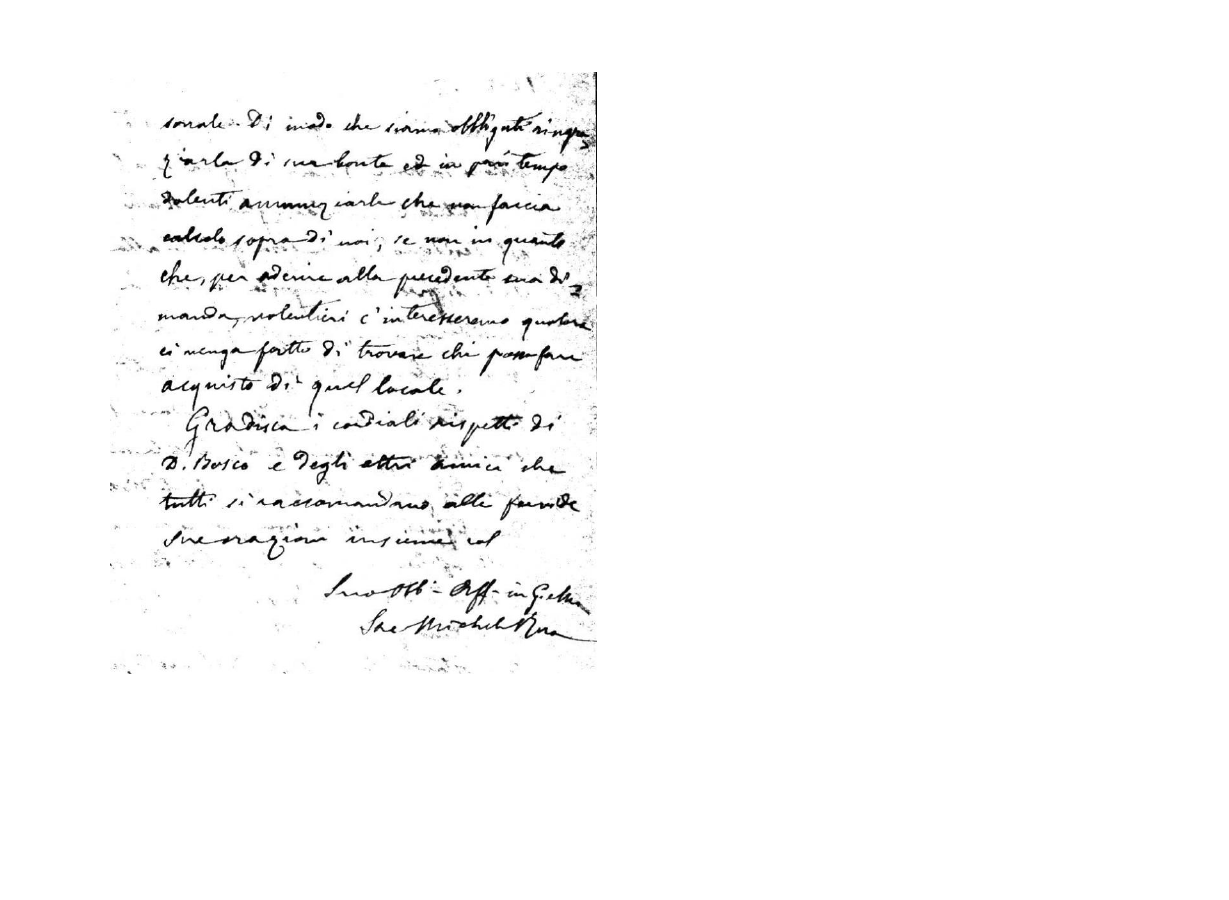 sonale. Di modo che siamo obbligati ringra=
ziarla di sua bontà ed in pari tempo
dolenti annunziarle che non faccia
calcolo sopra di noi, se non in quanto
che, per aderire alla precedente sua di=
manda, volentieri c'interesseremo qualora
ci venga fatto di trovare chi possa fare
acquisto di quel locale.
Gradisca i cordiali rispetti di
D. Bosco e degli altri amici che
tutti si raccomandano alle fervide
Sue orazioni insieme col
Suo Obb. Aff. in G. e M.
Sac. Michele Rua